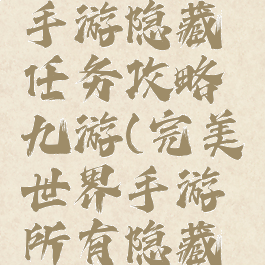 手游隐藏
任务攻略
九游(完美
世界手游
所有隐藏